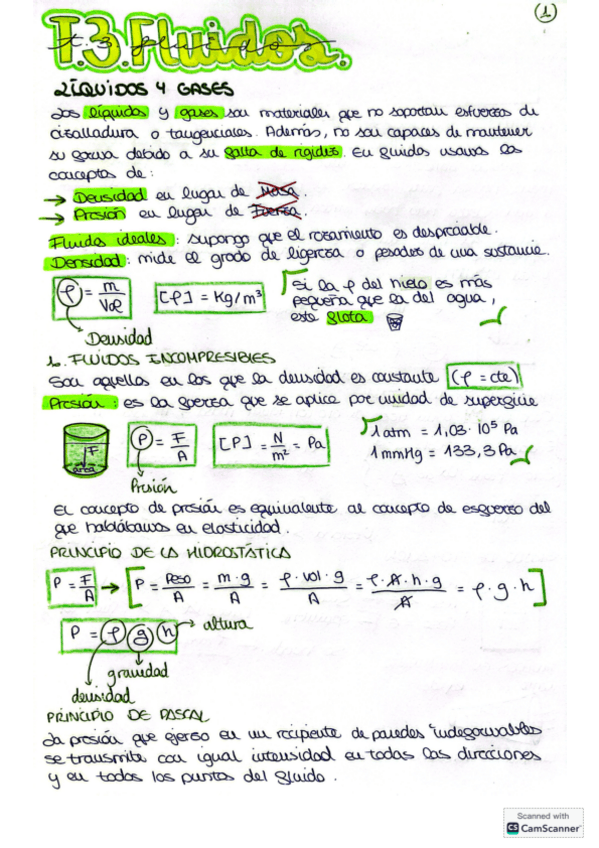 1
T.3.Fluidos.
t.3 fluidos
LÍQUIDOS Y GASES
Los líquidos y gases son materiales que no soportan esfuerzos de
cizalladura o tangenciales. Además, no son capaces de mantener
su forma debido a su falta de rigidez. En fluidos usamos los
conceptos de:
→ Densidad en lugar de Masa.
→ Presión en lugar de Fuerza.
Fluidos ideales: supongo que el rozamiento es despreciable.
Densidad: mide el grado de ligereza o pesadez de una sustancia.
ρ = m / Vol
[ρ] = Kg/m³
Si la ρ del hielo es más
pequeña que la del agua,
este flota
Densidad
1. FLUIDOS INCOMPRESIBLES
Son aquellos en los que la densidad es constante (ρ = cte)
Presión: es la fuerza que se aplica por unidad de superficie
F
área
P = F / A
[P] = N / m² = Pa
1 atm = 1,03 · 10⁵ Pa
1 mmHg = 133,3 Pa
Presión
El concepto de presión es equivalente al concepto de esfuerzo del
que hablábamos en elasticidad.
PRINCIPIO DE LA HIDROSTÁTICA
P = F / A → [P = Peso / A = m · g / A = ρ · vol · g / A = ρ · A · h · g / A = ρ · g · h]
P = ρ g h → altura
gravedad
densidad
PRINCIPIO DE PASCAL
La presión que ejerzo en un recipiente de paredes indeformables
se transmite con igual intensidad en todas las direcciones
y en todos los puntos del fluido.
Scanned with
CS CamScanner